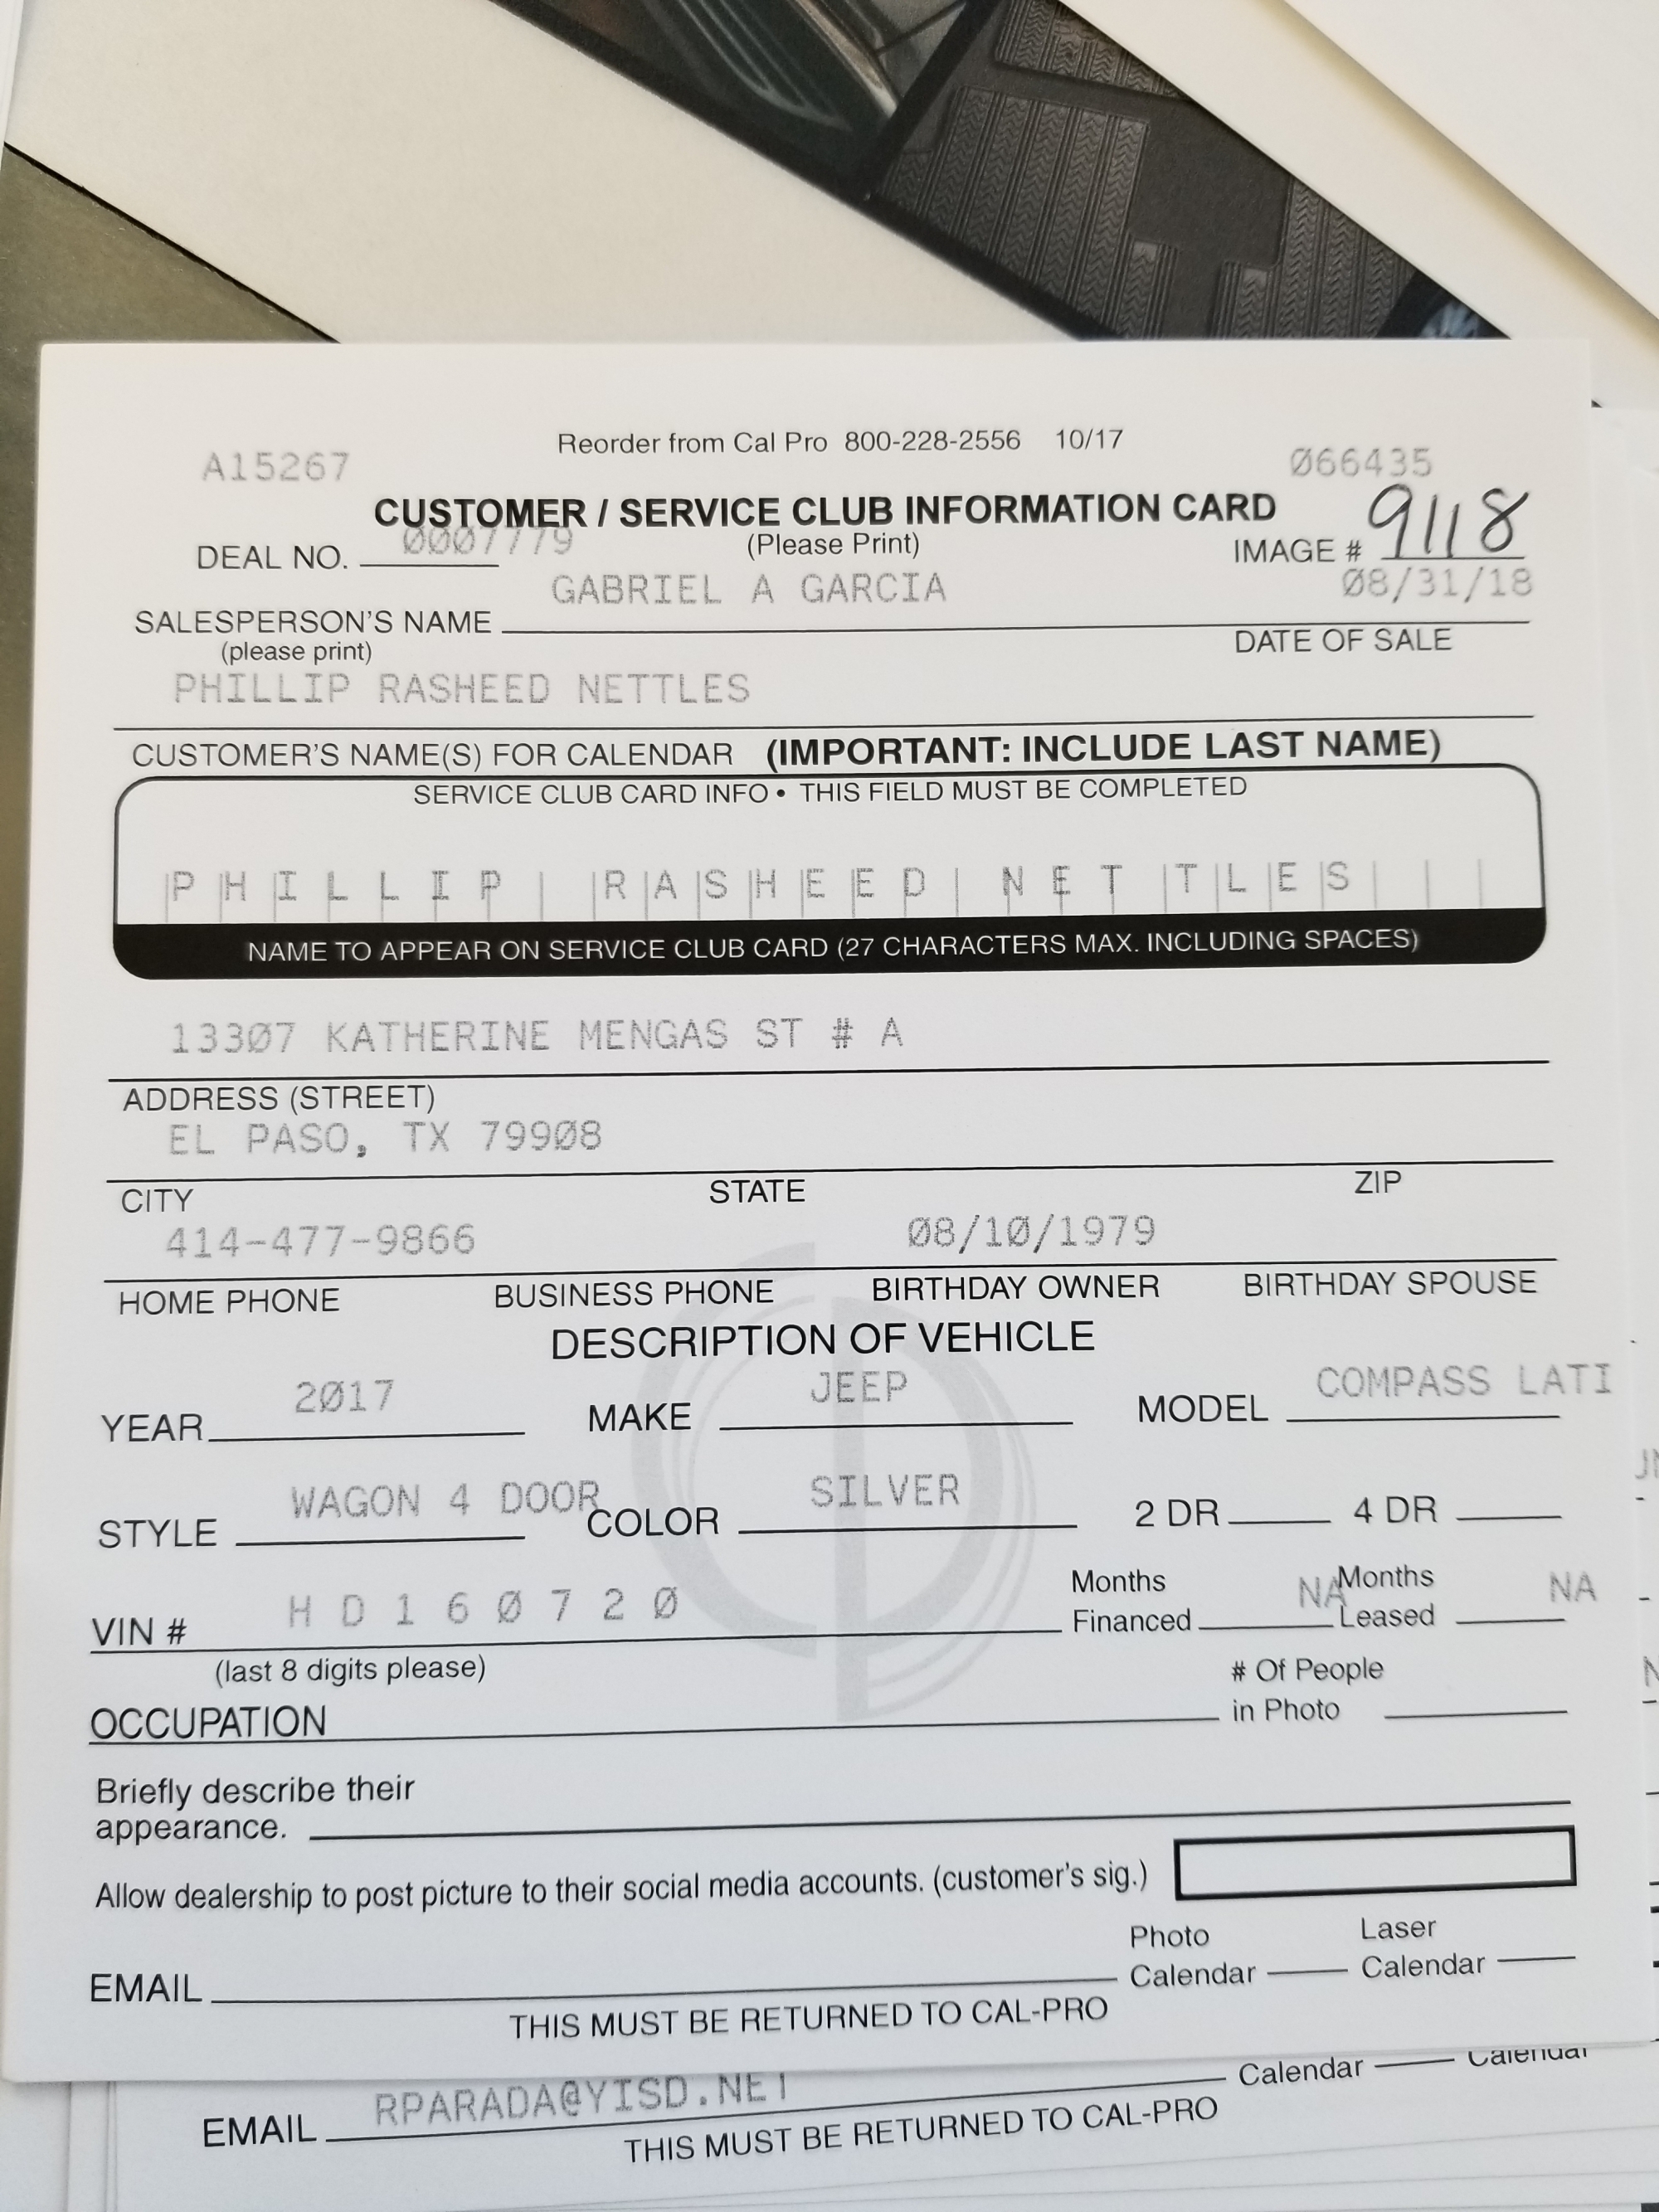 Reorder from Cal Pro 800-228-2556 10/17
A15267 066435
CUSTOMER / SERVICE CLUB INFORMATION CARD
DEAL NO. 0007779 (Please Print) IMAGE # 9118
GABRIEL A GARCIA 08/31/18
SALESPERSON'S NAME DATE OF SALE
(please print)
PHILLIP RASHEED NETTLES
CUSTOMER'S NAME(S) FOR CALENDAR (IMPORTANT: INCLUDE LAST NAME)
SERVICE CLUB CARD INFO • THIS FIELD MUST BE COMPLETED
PHILLIP RASHEED NETTLES
NAME TO APPEAR ON SERVICE CLUB CARD (27 CHARACTERS MAX. INCLUDING SPACES)
13307 KATHERINE MENGAS ST # A
ADDRESS (STREET)
EL PASO, TX 79908
CITY STATE ZIP
414-477-9866 08/10/1979
HOME PHONE BUSINESS PHONE BIRTHDAY OWNER BIRTHDAY SPOUSE
DESCRIPTION OF VEHICLE
YEAR 2017 MAKE JEEP MODEL COMPASS LATI
STYLE WAGON 4 DOOR COLOR SILVER 2 DR 4 DR
VIN # HD160720 Months Financed NA Months Leased NA
(last 8 digits please)
OCCUPATION # Of People in Photo
Briefly describe their
appearance.
Allow dealership to post picture to their social media accounts. (customer's sig.)
EMAIL Photo Calendar Laser Calendar
THIS MUST BE RETURNED TO CAL-PRO
EMAIL RPARADA@YISD.NET Calendar Calendar
THIS MUST BE RETURNED TO CAL-PRO